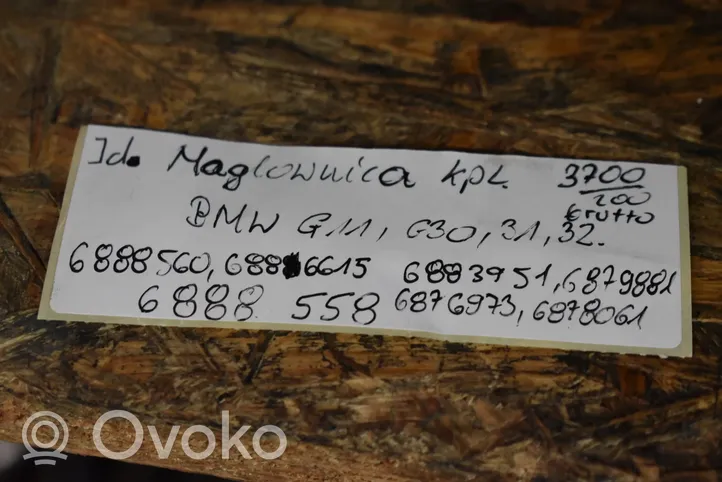 Jd. Maglownica kpl. 3700
200
BMW G11, G30, 31, 32. brutto
6888560, 6886615 6883951, 6879881
6888 558 6876973, 6878061
Ovoko